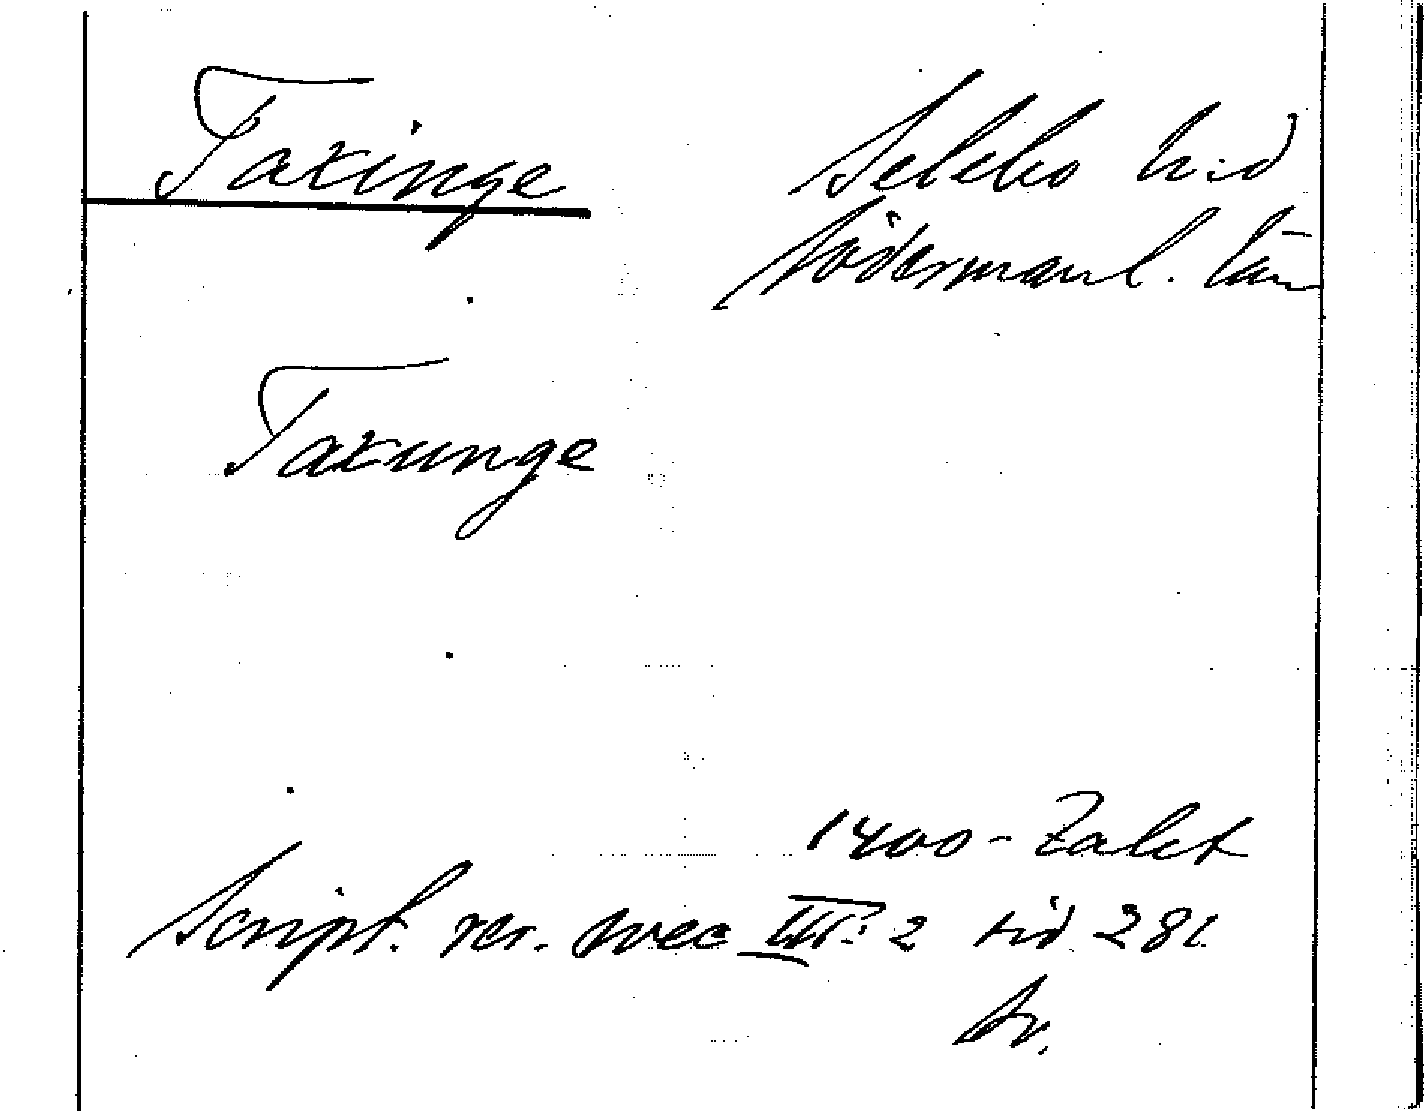 Taxinge Selebo h:d
Södermanl. län
Taxunge
1400-talet
Script. rer. svec III: 2 sid 281
tr.